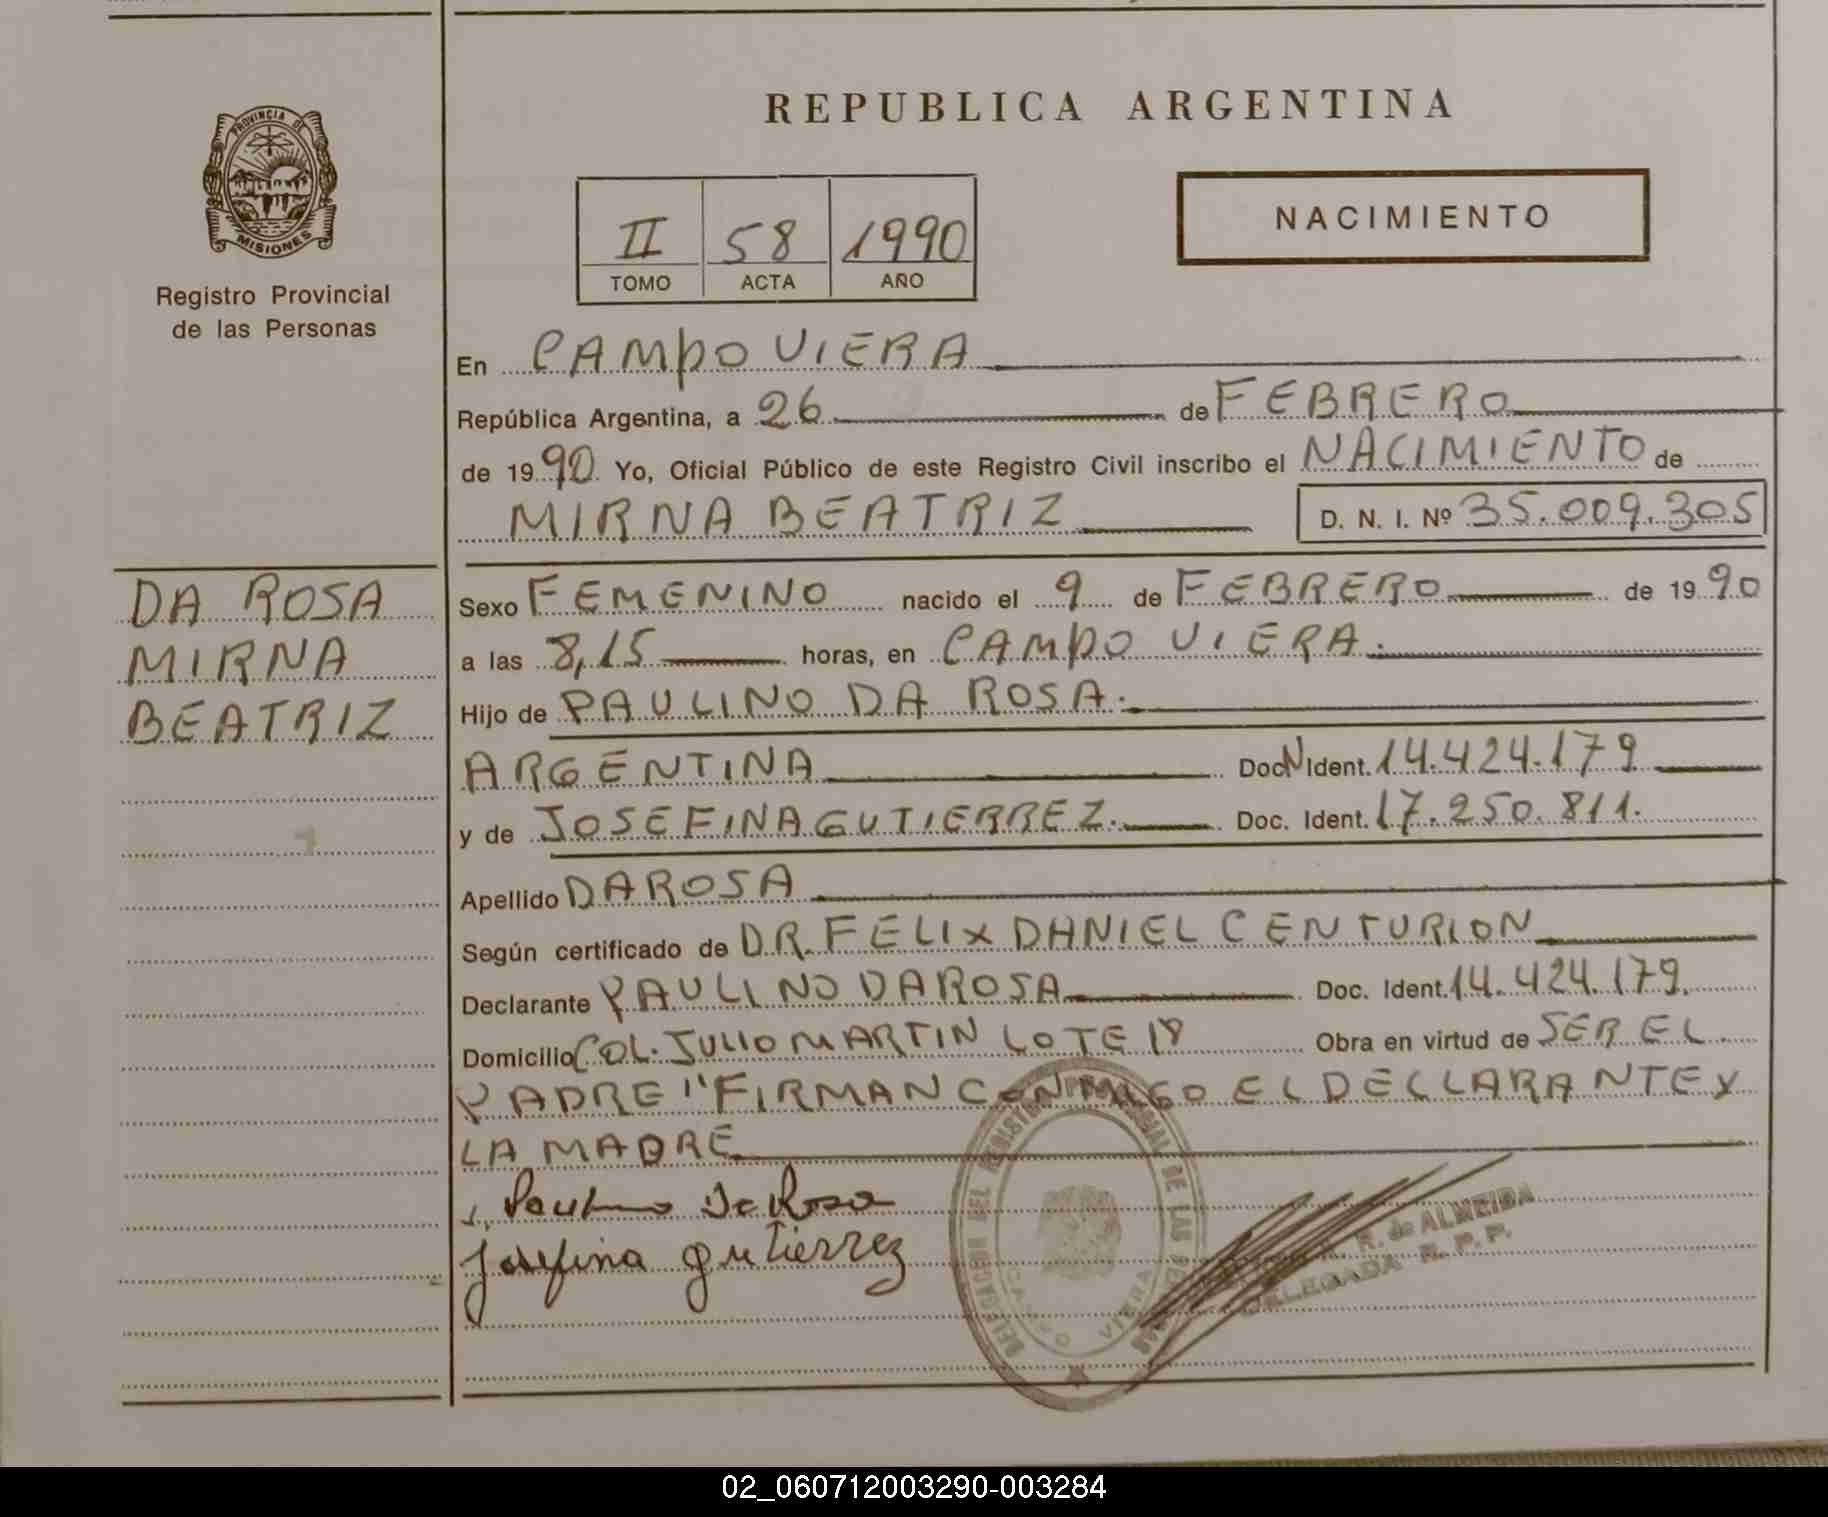 REPUBLICA ARGENTINA
PROVINCIA DE
MISIONES
Registro Provincial
de las Personas
II 58 1990
TOMO ACTA AÑO
NACIMIENTO
En CAMPO VIERA
República Argentina, a 26 de FEBRERO
de 1990 Yo, Oficial Público de este Registro Civil inscribo el NACIMIENTO de
MIRNA BEATRIZ D. N. I. Nº 35.009.305
DA ROSA
MIRNA
BEATRIZ
Sexo FEMENINO nacido el 9 de FEBRERO de 1990
a las 8,15 horas, en CAMPO VIERA.
Hijo de PAULINO DA ROSA.
ARGENTINA Doc N Ident. 14.424.179
y de JOSEFINA GUTIERREZ. Doc. Ident. 17.250.811.
Apellido DA ROSA
Según certificado de DR. FELIX DANIEL CENTURION
Declarante PAULINO DA ROSA Doc. Ident. 14.424.179.
Domicilio COL. JULIO MARTIN LOTE 18 Obra en virtud de SER EL
PADRE "FIRMAN CONMIGO EL DECLARANTE Y
LA MADRE
Paulino Da Rosa
Josefina gutierrez
DELEGACION DEL REGISTRO PROVINCIAL DE LAS PERSONAS
CAMPO VIERA
R. de ALMEIDA
DELEGADA R. P. P.
02_060712003290-003284